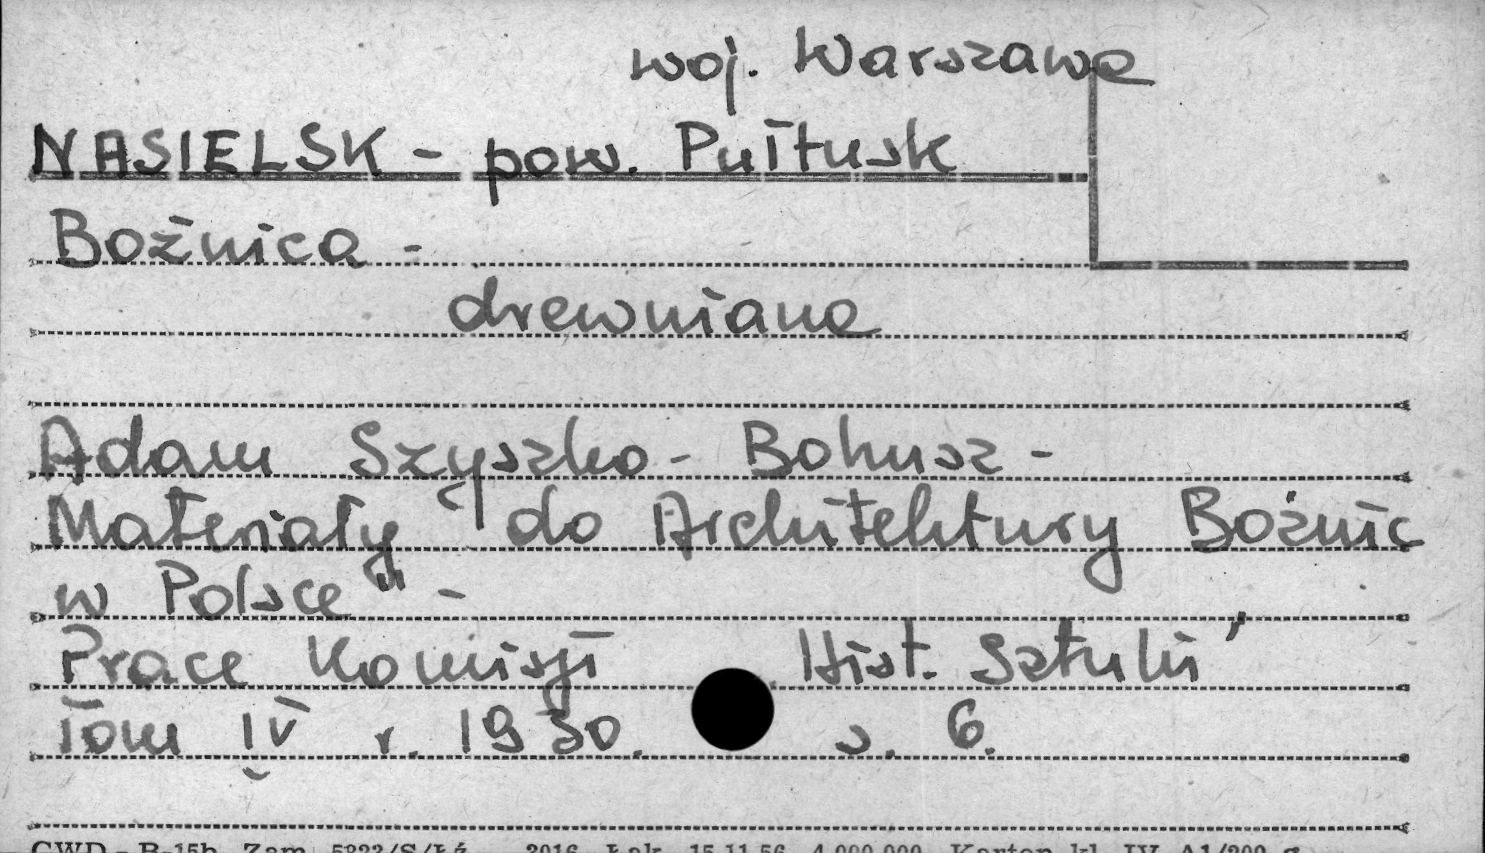 woj. Warszawa
NASIELSK - pow. Pułtusk
Bożnica -
drewniana
Adam Szyszko - Bohusz -
Materiały "do Architektury Bożnic
w Polsce" -
Prace Komisji Hist. Sztuki,
Tom IV r. 1930. s. 6.
CWD - B-15b. Zam. 5823/S/Łź. 3016. Łak. 15.11.56. 4.000.000. Karton kl. IV. A1/200 g.